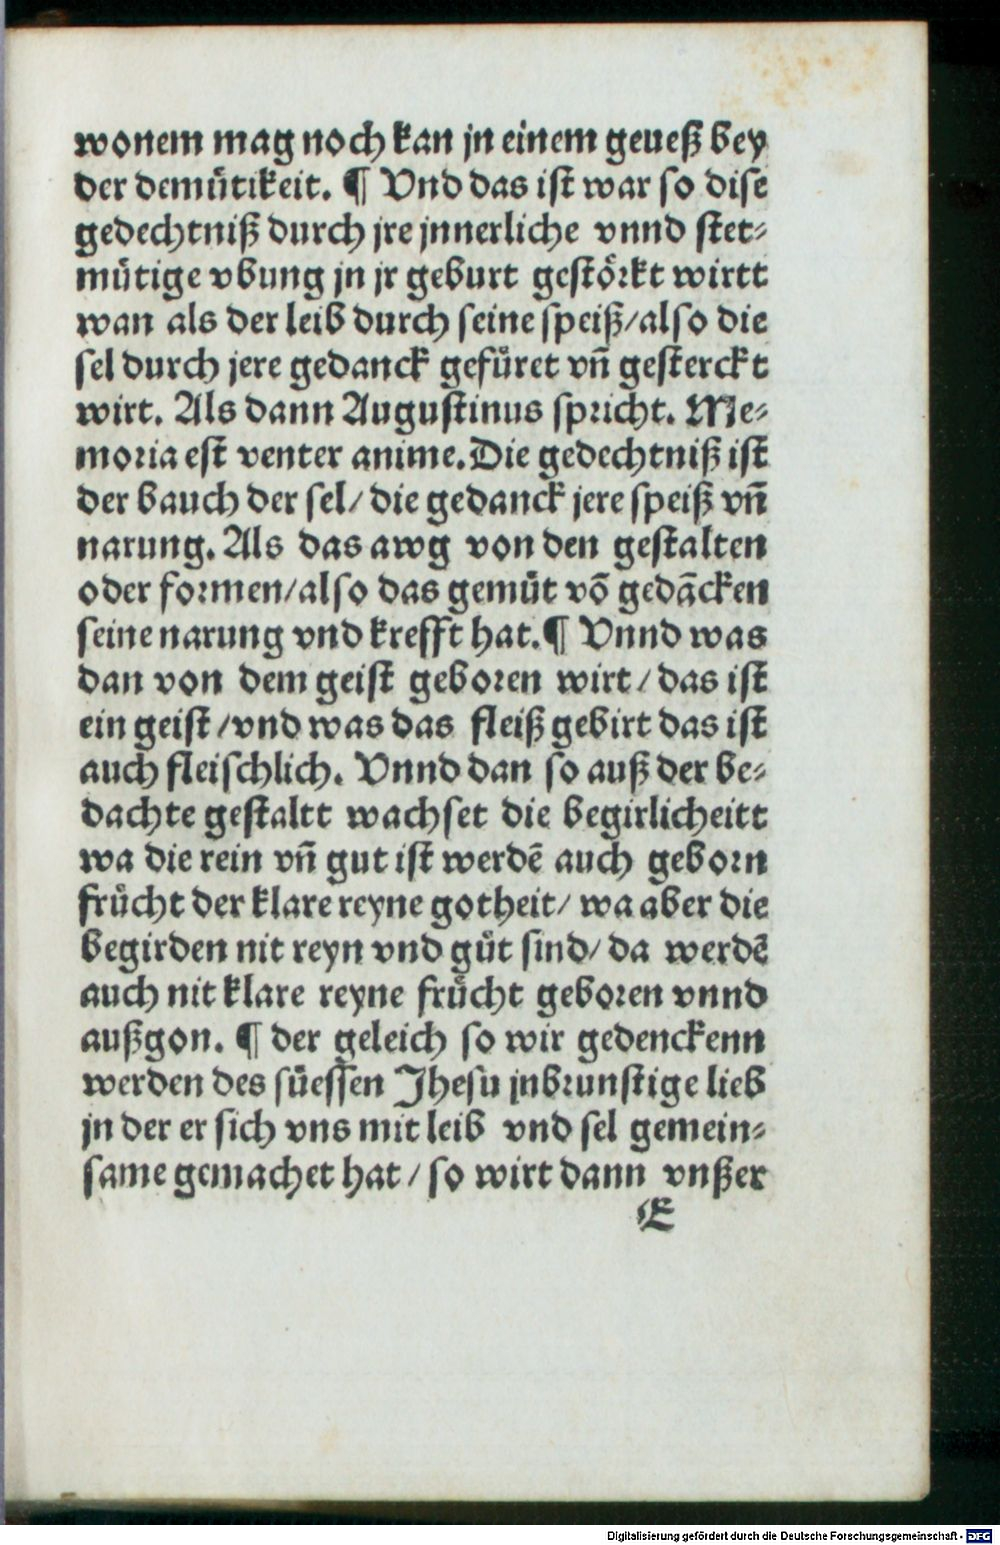 wonem mag noch kan jn einem geueß bey
der demuͤtikeit. ¶ Vnd das ist war so dise
gedechtniß durch jre jnnerliche vnnd stet⸗
muͤtige vbung jn jr geburt gestoͤrkt wirtt
wan als der leib durch seine speiß/also die
sel durch jere gedanck gefuͤret vñ gesterckt
wirt. Als dann Augustinus spricht. Me⸗
moria est venter anime. Die gedechtniß ist
der bauch der sel/ die gedanck jere speiß vñ
narung. Als das awg von den gestalten
oder formen/also das gemuͤt võ gedãcken
seine narung vnd krefft hat.¶ Vnnd was
dan von dem geist geboren wirt/ das ist
ein geist/vnd was das fleiß gebirt das ist
auch fleischlich. Vnnd dan so auß der be⸗
dachte gestaltt wachset die begirlicheitt
wa die rein vñ gut ist werdẽ auch geborn
fruͤcht der klare reyne gotheit/ wa aber die
begirden nit reyn vnd guͤt sind/ da werdẽ
auch nit klare reyne fruͤcht geboren vnnd
außgon. ¶ der geleich so wir gedenckenn
werden des suͤessen Jhesu jnbrunstige lieb
jn der er sich vns mit leib vnd sel gemein⸗
same gemachet hat/ so wirt dann vnßer
E
Digitalisierung gefördert durch die Deutsche Forschungsgemeinschaft - DFG